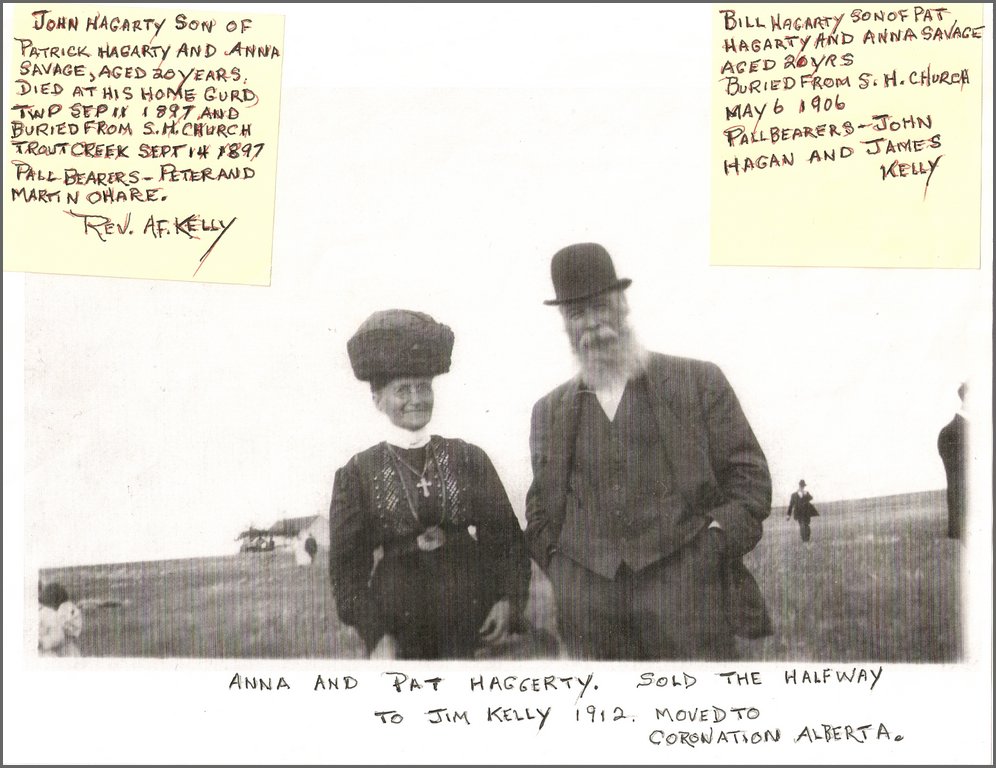 JOHN HAGARTY SON OF
PATRICK HAGARTY AND ANNA
SAVAGE, AGED 20 YEARS.
DIED AT HIS HOME GURD
TWP SEP 11 1897 AND
BURIED FROM S.H. CHURCH
TROUT CREEK SEPT 14 1897
PALL BEARERS - PETER AND
MARTIN OHARE.
REV. A.F. KELLY
BILL HAGARTY SON OF PAT
HAGARTY AND ANNA SAVAGE
AGED 20 YRS
BURIED FROM S. H. CHURCH
MAY 6 1906
PALLBEARERS - JOHN
HAGAN AND JAMES
KELLY
ANNA AND PAT HAGGERTY. SOLD THE HALFWAY
TO JIM KELLY 1912. MOVED TO
CORONATION ALBERTA.